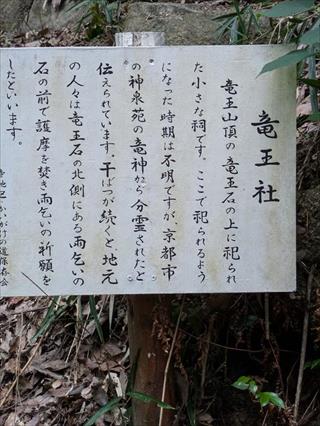 竜王社
竜王山頂の竜王石の上に祀られ
た小さな祠です。ここで祀られるよう
になった時期は不明ですが、京都市
の神泉苑の竜神から分霊されたと
伝えられています。干ばつが続くと、地元
の人々は竜王石の北側にある雨乞いの
石の前で護摩を焚き雨乞いの祈願を
したといいます。